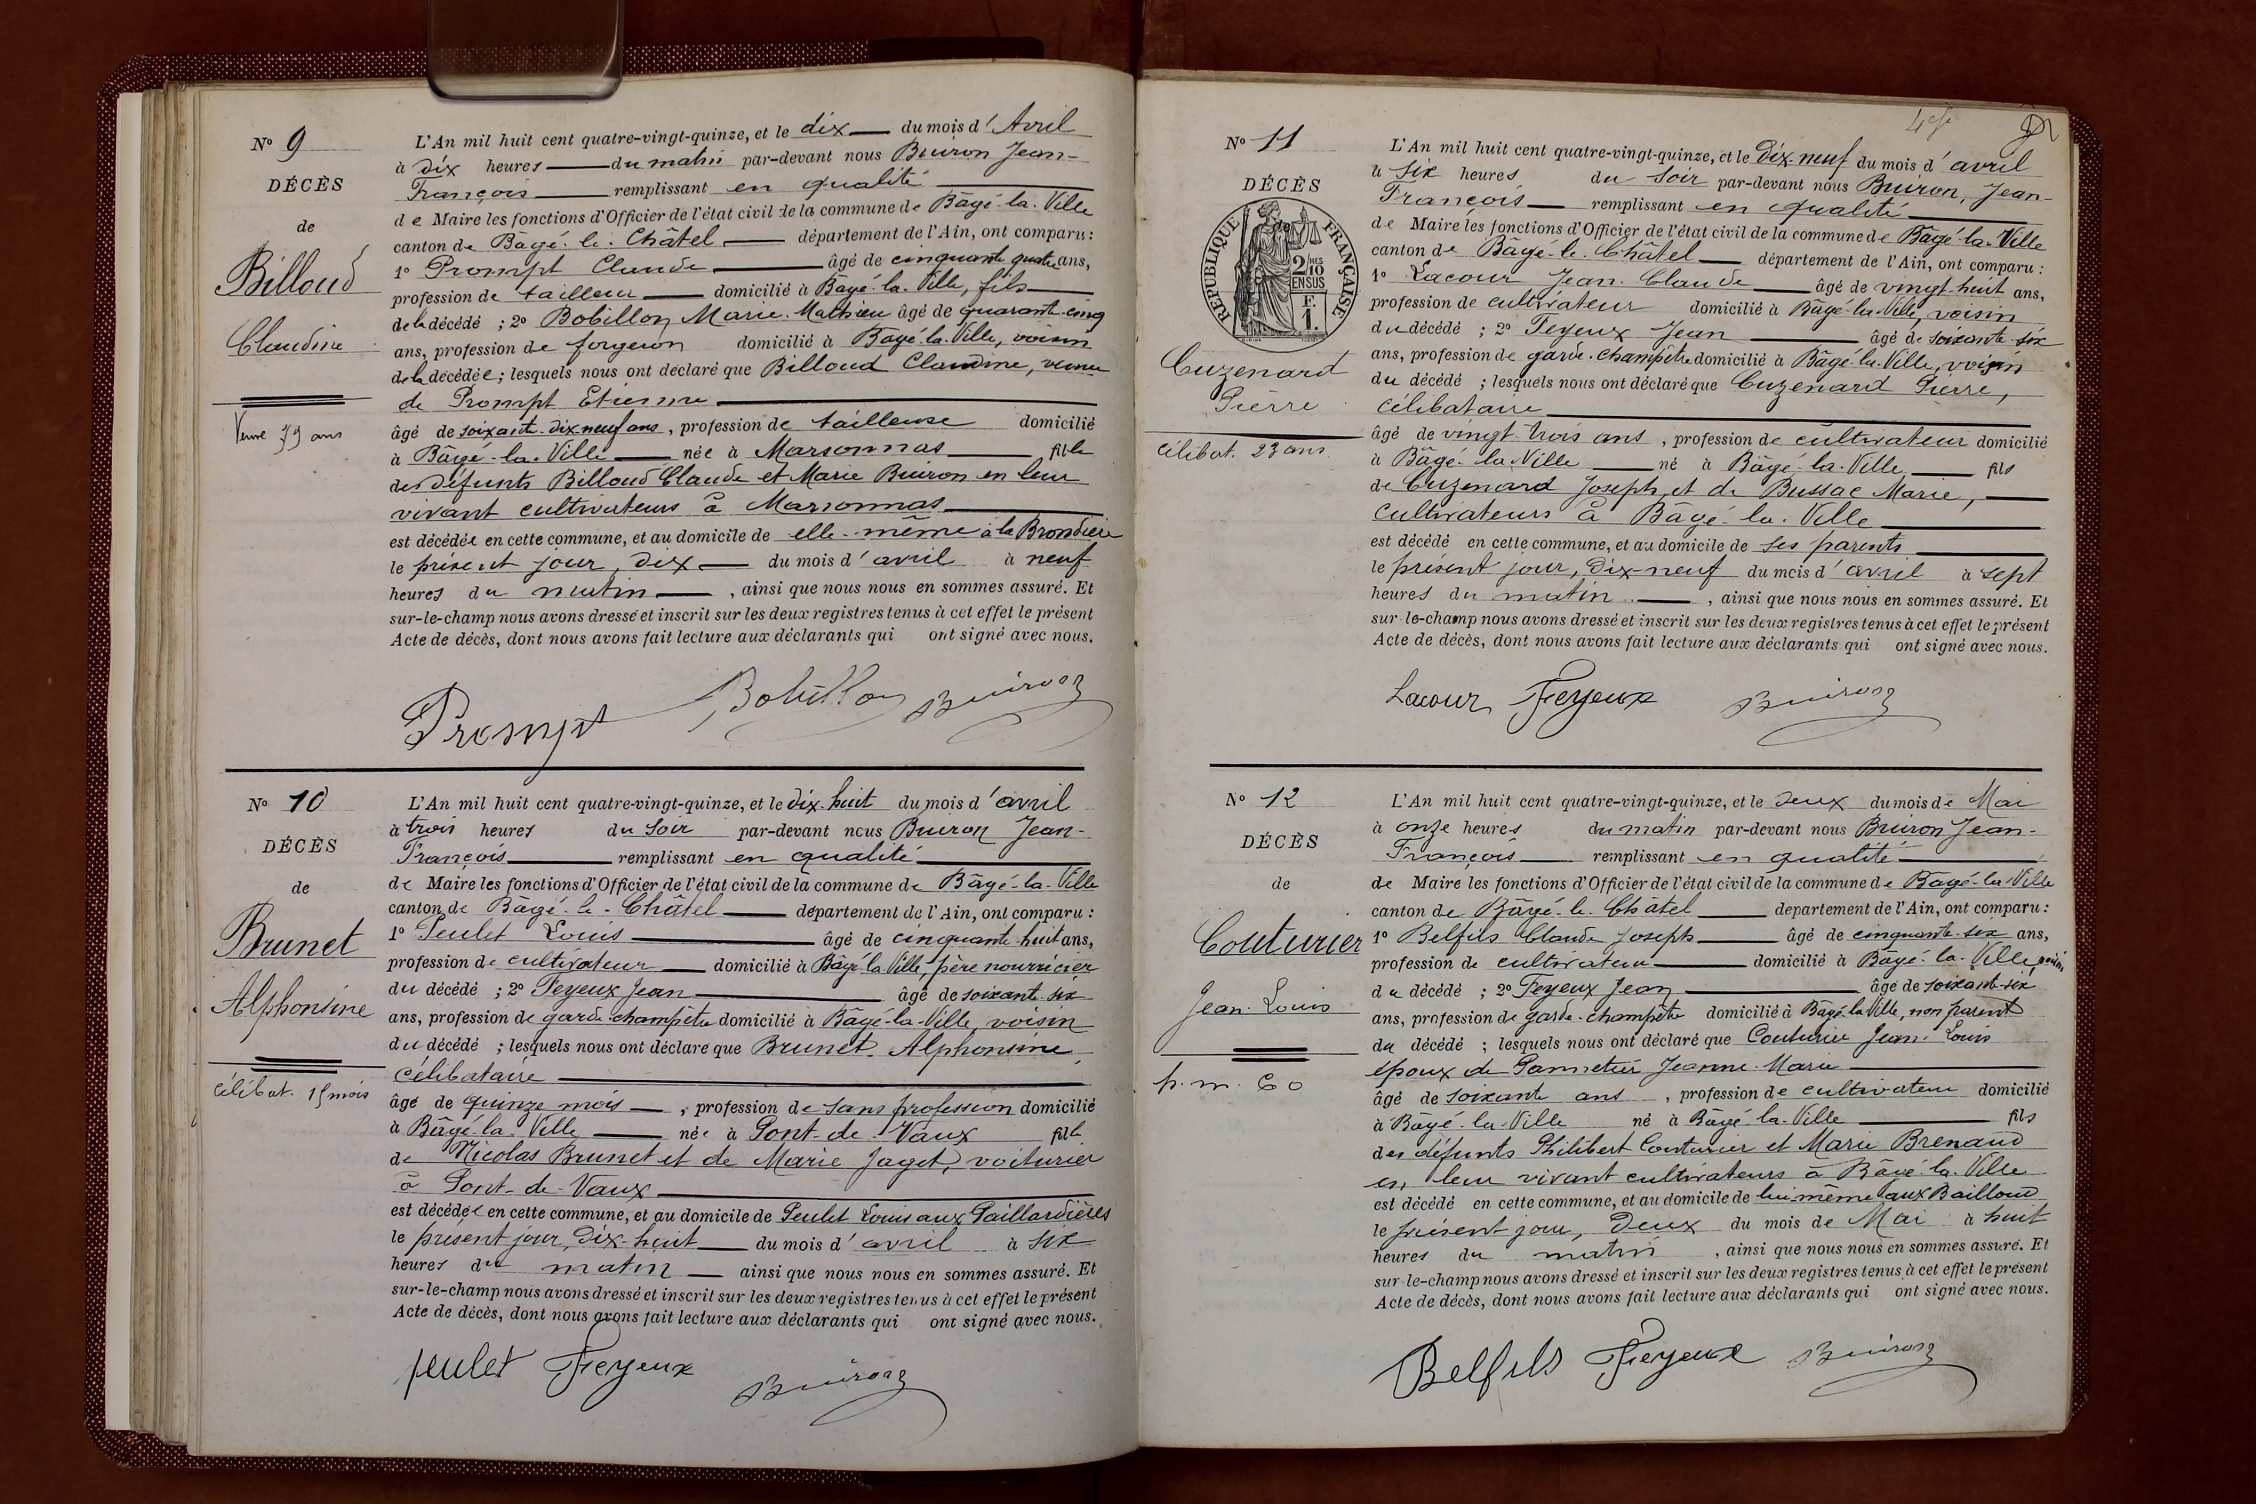 Nº 9
DÉCÈS
de
Billoud
Claudine
Veuve 79 ans
L'An mil huit cent quatre-vingt-quinze, et le dix du mois d' Avril
à dix heures du matin par-devant nous Buiron Jean-
François remplissant en qualité
de Maire les fonctions d'Officier de l'état civil de la commune de Bâgé-la-Ville
canton de Bâgé-le-Châtel département de l'Ain, ont comparu :
1º Prompt Claude âgé de cinquante quatre ans,
profession de tailleur domicilié à Bâgé-la-Ville, fils
de la décédé ; 2º Bobillon Marie-Mathieu âgé de quarante-cinq
ans, profession de forgeron domicilié à Bâgé-la-Ville, voisin
de la décédée ; lesquels nous ont déclaré que Billoud Claudine, veuve
de Prompt Etienne
âgé de soixante-dix-neuf ans, profession de tailleuse domicilié
à Bâgé-la-Ville née à Marsonnas fille
des défunts Billoud Claude et Marie Buiron en leur
vivant cultivateurs à Marsonnas
est décédée en cette commune, et au domicile de elle-même à la Brondière
le présent jour, dix du mois d' avril à neuf
heures du matin, ainsi que nous nous en sommes assuré. Et
sur-le-champ nous avons dressé et inscrit sur les deux registres tenus à cet effet le présent
Acte de décès, dont nous avons fait lecture aux déclarants qui ont signé avec nous.
Prompt Bobillon Buiron
Nº 10
DÉCÈS
de
Brunet
Alphonsine
célibat. 15 mois
L'An mil huit cent quatre-vingt-quinze, et le dix-huit du mois d' avril
à trois heures du soir par-devant nous Buiron Jean-
François remplissant en qualité
de Maire les fonctions d'Officier de l'état civil de la commune de Bâgé-la-Ville
canton de Bâgé-le-Châtel département de l'Ain, ont comparu :
1º Peulet Louis âgé de cinquante-huit ans,
profession de cultivateur domicilié à Bâgé-la-Ville, père nourricier
du décédé ; 2º Feyeux Jean âgé de soixante-six
ans, profession de garde-champêtre domicilié à Bâgé-la-Ville, voisin
du décédé ; lesquels nous ont déclaré que Brunet Alphonsine,
célibataire
âgé de quinze mois, profession de sans profession domicilié
à Bâgé-la-Ville née à Pont-de-Vaux fille
de Nicolas Brunet et de Marie Jaget, voiturier
à Pont-de-Vaux
est décédée en cette commune, et au domicile de Peulet Louis aux Gaillardières
le présent jour, dix-huit du mois d' avril à six
heures du matin ainsi que nous nous en sommes assuré. Et
sur-le-champ nous avons dressé et inscrit sur les deux registres tenus à cet effet le présent
Acte de décès, dont nous avons fait lecture aux déclarants qui ont signé avec nous.
peulet Feyeux Buiron
Nº 11
DÉCÈS
RÉPUBLIQUE FRANÇAISE
2/10
EN SUS
F.
1.
Cuzenard
Pierre
célibat. 23 ans
L'An mil huit cent quatre-vingt-quinze, et le dix-neuf du mois d' avril
à six heures du soir par-devant nous Buiron, Jean-
François remplissant en qualité
de Maire les fonctions d'Officier de l'état civil de la commune de Bâgé-la-Ville
canton de Bâgé-le-Châtel département de l'Ain, ont comparu :
1º Lacour Jean-Claude âgé de vingt-huit ans,
profession de cultivateur domicilié à Bâgé-la-Ville, voisin
du décédé ; 2º Feyeux Jean âgé de soixante-six
ans, profession de garde-champêtre domicilié à Bâgé-la-Ville, voisin
du décédé ; lesquels nous ont déclaré que Cuzenard Pierre,
célibataire
âgé de vingt-trois ans, profession de cultivateur domicilié
à Bâgé-la-Ville né à Bâgé-la-Ville fils
de Cuzenard Joseph, et de Bussac Marie,
cultivateurs à Bâgé-la-Ville
est décédé en cette commune, et au domicile de ses parents
le présent jour, dix-neuf du mois d' avril à sept
heures du matin, ainsi que nous nous en sommes assuré. Et
sur-le-champ nous avons dressé et inscrit sur les deux registres tenus à cet effet le présent
Acte de décès, dont nous avons fait lecture aux déclarants qui ont signé avec nous.
Lacour Feyeux Buiron
Nº 12
DÉCÈS
de
Couturier
Jean-Louis
h. m. 60
L'An mil huit cent quatre-vingt-quinze, et le deux du mois de Mai
à onze heures du matin par-devant nous Buiron Jean-
François remplissant en qualité
de Maire les fonctions d'Officier de l'état civil de la commune de Bâgé-la-Ville
canton de Bâgé-le-Châtel département de l'Ain, ont comparu :
1º Belfils Claude Joseph âgé de cinquante-six ans,
profession de cultivateur domicilié à Bâgé-la-Ville, voisin
du décédé ; 2º Feyeux Jean âgé de soixante-six
ans, profession de garde-champêtre domicilié à Bâgé-la-Ville, non parent
du décédé ; lesquels nous ont déclaré que Couturier Jean-Louis
époux de Jeanne-Marie
âgé de soixante ans, profession de cultivateur domicilié
à Bâgé-la-Ville né à Bâgé-la-Ville fils
des défunts Philibert Couturier et Marie Brenaud
en leur vivant cultivateurs à Bâgé-la-Ville
est décédé en cette commune, et au domicile de lui-même aux Bailloud
le présent jour, deux du mois de Mai à huit
heures du matin, ainsi que nous nous en sommes assuré. Et
sur-le-champ nous avons dressé et inscrit sur les deux registres tenus à cet effet le présent
Acte de décès, dont nous avons fait lecture aux déclarants qui ont signé avec nous.
Belfils Feyeux Buiron